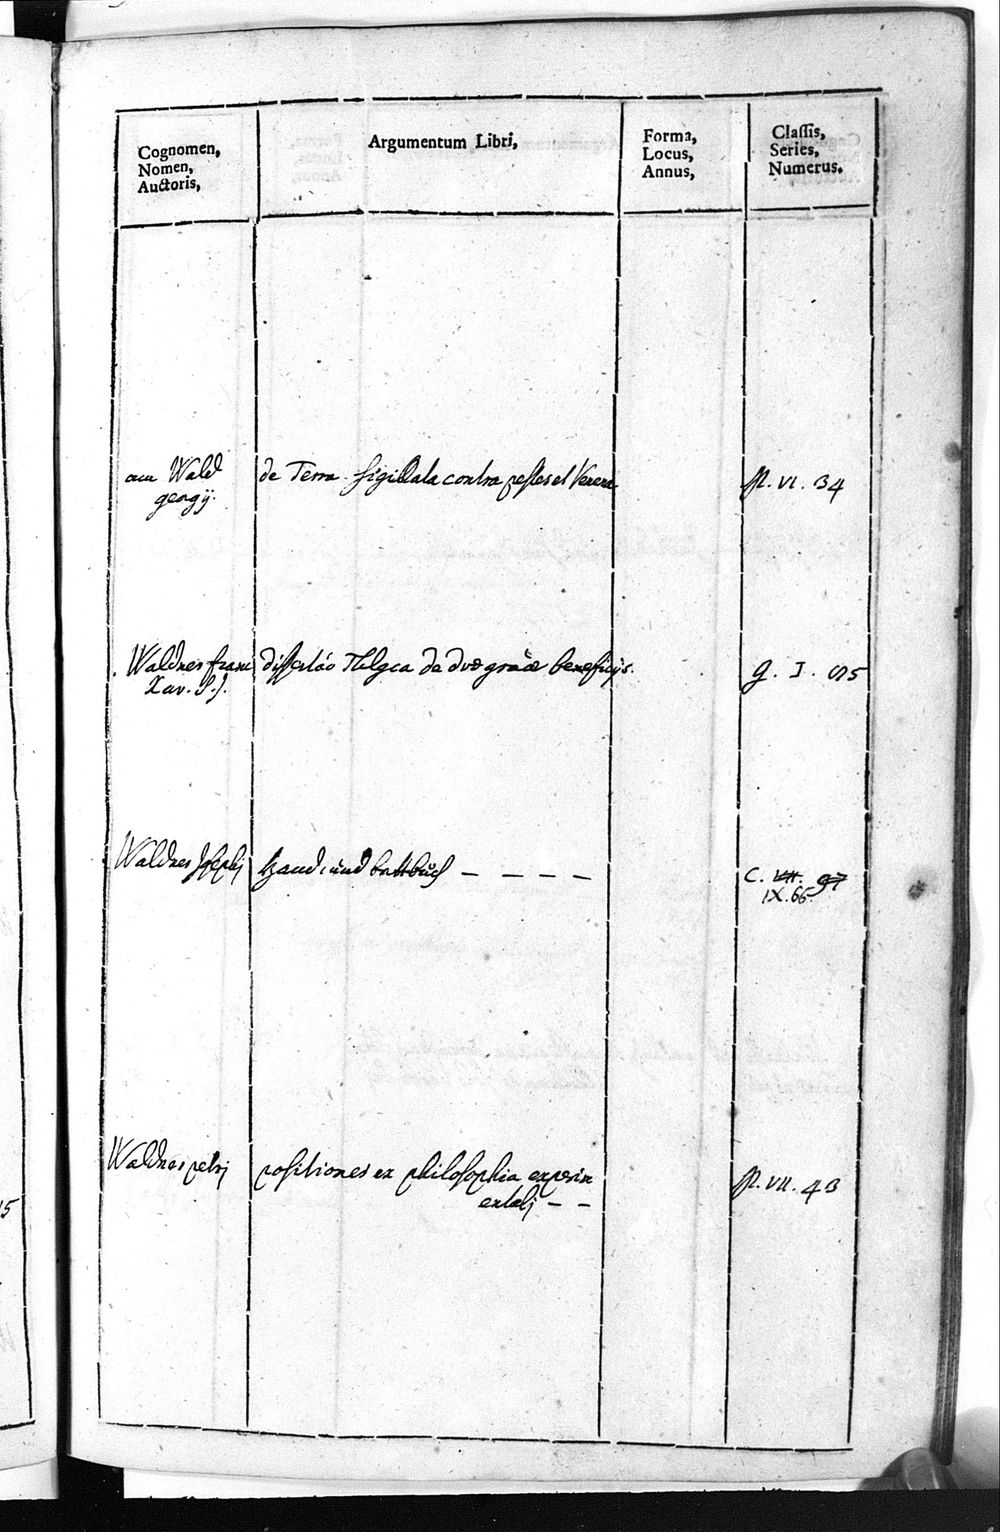 Cognomen,
Nomen,
Auctoris,
Argumentum Libri,
Forma,
Locus,
Annus,
Classis,
Series,
Numerus.
am Wald
georgij.
de Terra sigillata contra pestes et Venena
p. VI. 34
Waldner franc
Xav. S.J.
dissertão Thlgca de dvæ grãæ beneficijs.
g. I.
Waldner Josephj
Hand, und bettbuch – – – –
C. VII. 97
IX. 66.
Waldner petrj
positiones ex philosophia experim
entalj – –
p. VII. 43